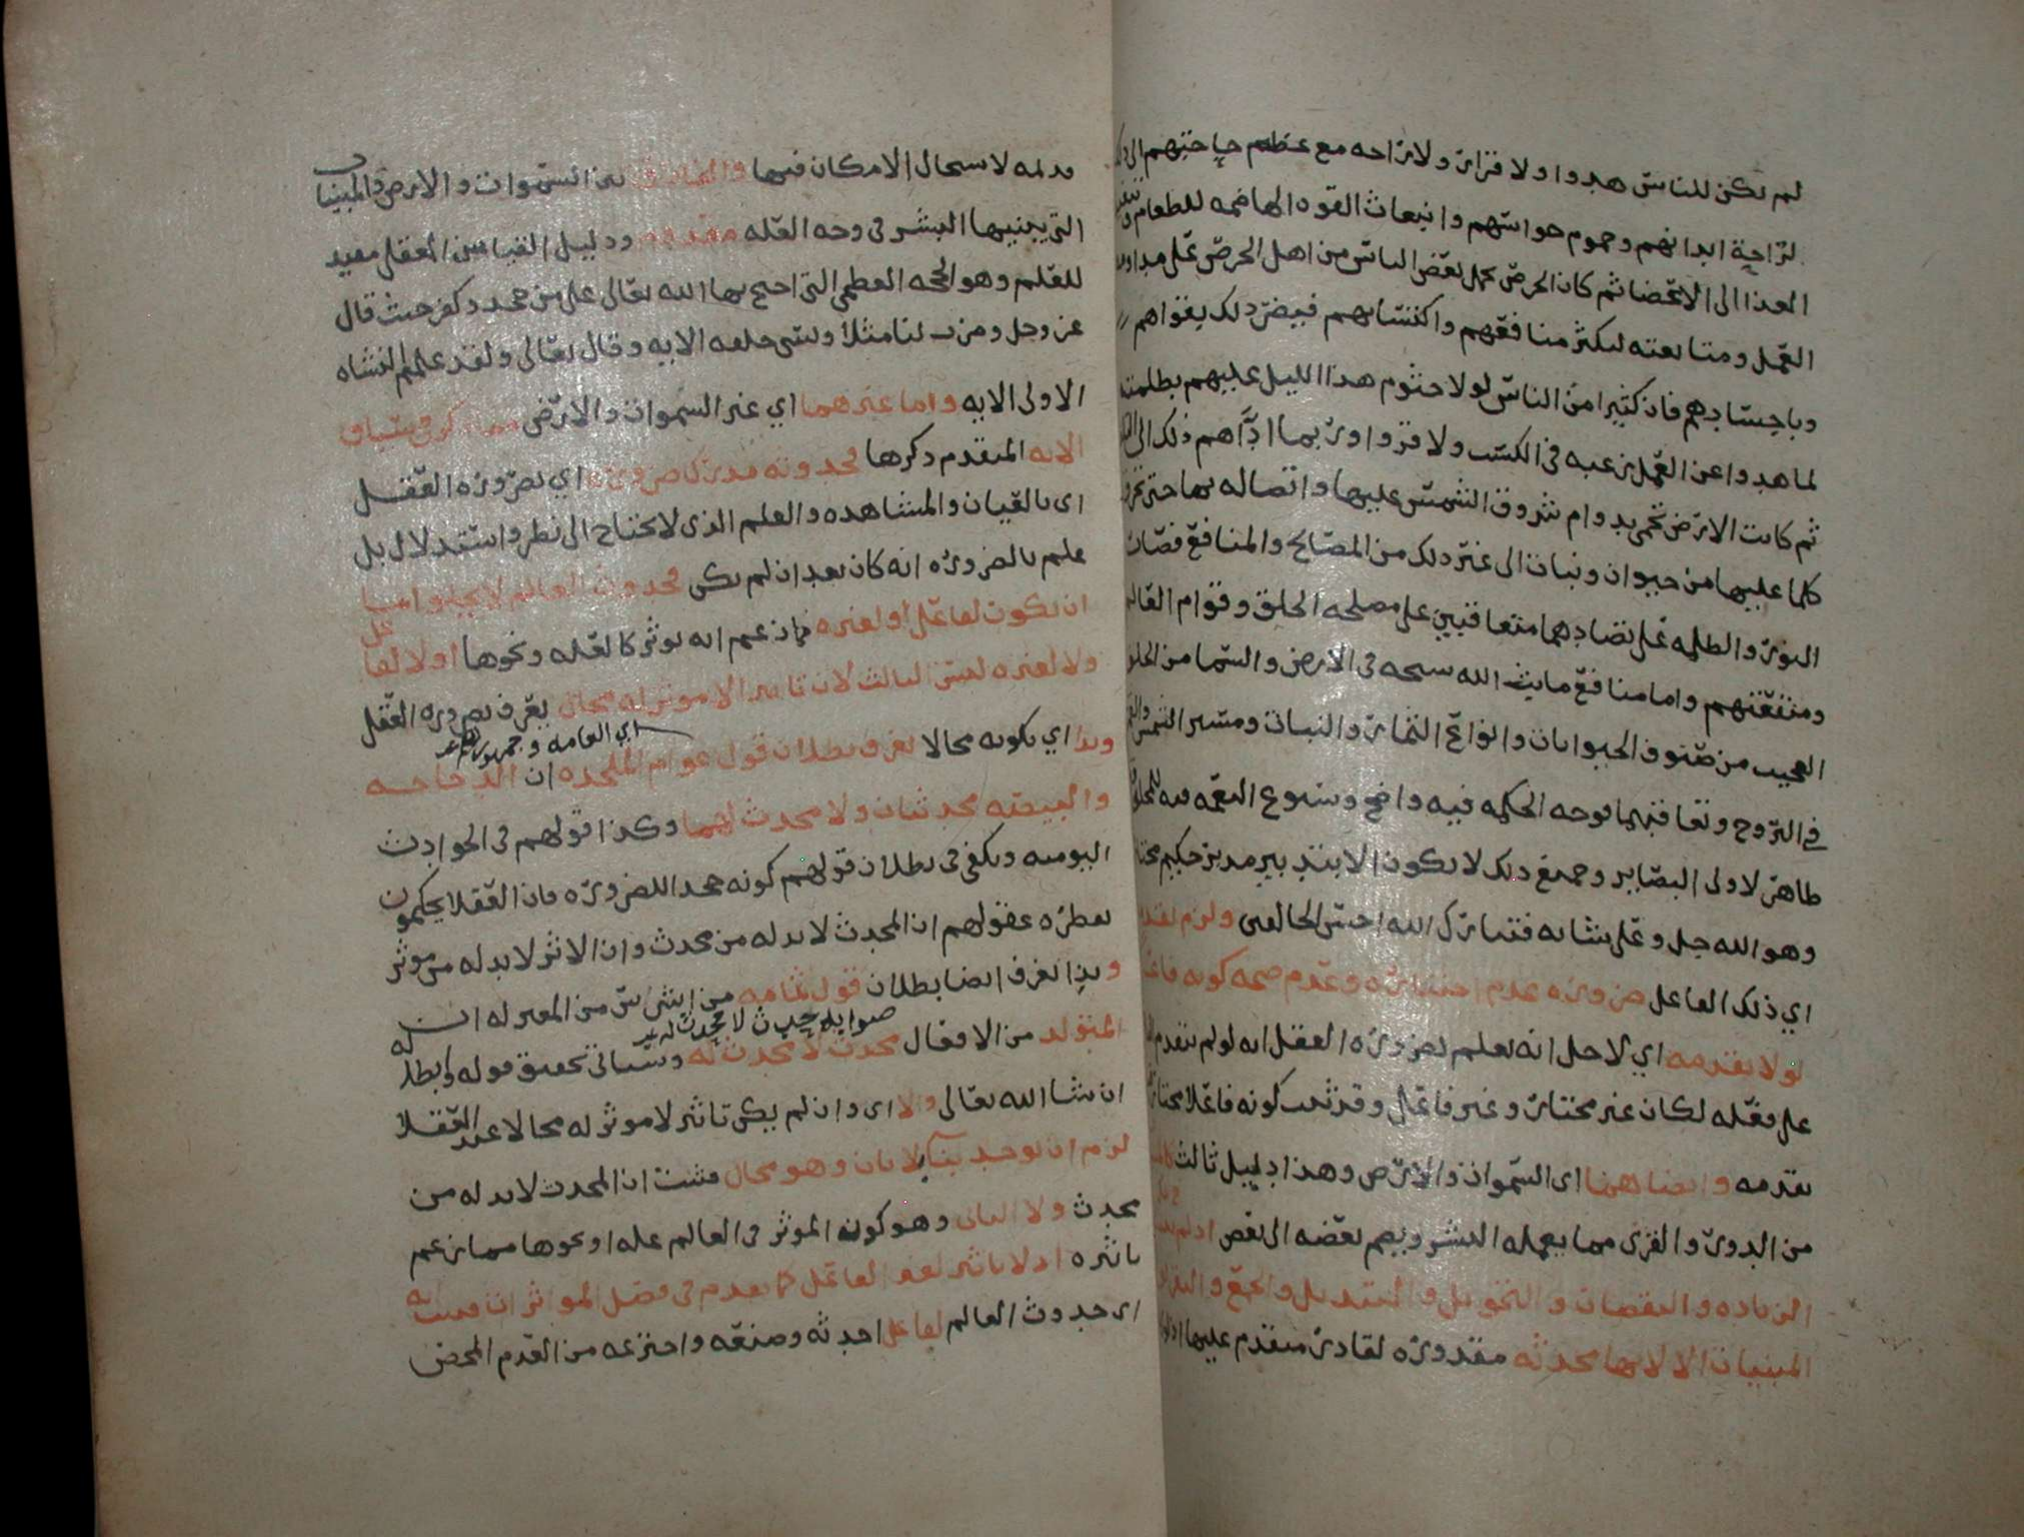 لم يكن للناس هدوا ولا قرار ولا راحه مع عظم حاجتهم الى
لراحة ابدانهم وجموم حواسهم وانبعاث القوه الهاضمه للطعام
الغذا الى الاعضا ثم كان الحرص يحمل بعض الناس من اهل الحرص على مداومه
العمل ومتابعته ليكثر منافعهم واكتسابهم فيضر ذلك بقواهم
وباجسادهم فان كثيرا من الناس لولا جثوم هذا الليل عليهم بظلمته
لما هدوا عن العمل رغبه في الكسب ولا قروا وربما اداهم ذلك الى
ثم كانت الارض تحمى بدوام شروق الشمس عليها واتصاله بها حتى تحرق
كلما عليها من حيوان ونبات الى غير ذلك من المصالح والمنافع فصارت
النور والظلمه على تضادهما متعاقبين على مصلحه الخلق وقوام العالم
ومنفعتهم واما منافع ما بث الله سبحه في الارض والسما من الخلق
العجيب من صنوف الحيوانات وانواع الثمار والنبات ومسير الشمس والقمر
في البروج وتعاقبهما فوجه الحكمه فيه واضح وسبوع النعمه فيه للخلق
ظاهر لاولى البصاير وجميع ذلك لا يكون الا بتدبير مدبر حكيم مختار
وهو الله جل وعلى شانه فتبارك الله احسن الخالقين ولزم تقدمه
اي ذلك الفاعل ضروره عدم اختياره وعدم صحه كونه فاعلا
لولا تقدمه اي لاجل انه يعلم بضروره العقل انه لو لم يتقدم
على فعله لكان غير مختار وغير فاعل وقد ثبت كونه فاعلا مختارا
تقدمه وايضا هما اى السموات والارض وهذا دليل ثالث
من الدور والقرى مما يعمله البشر ويضم بعضه الى بعض اذ لم
الزياده والنقصان والتحويل والتبديل والجمع والتفريق
المبنيات الا لانها محدثه مقدوره لقادر متقدم عليها اذ لو
قديمه لاستحال الامكان فيها والفارق بين السموات والارض والمبنيات
التي يبنيها البشر في وجه العله مفقود ودليل القياس العقلى مفيد
للعلم وهو الحجه العظمى التى احتج بها الله تعالى على من جحد وكفر حيث قال
عز وجل وضرب لنا مثلا ونسى خلقه الايه وقال تعالى ولقد علمتم النشاه
الاولى الايه واما غيرهما اي غير السموات والارض مما ذكر في سياق
الايه المتقدم ذكرها فحدوثه مدرك ضروره اي بضروره العقل
اى بالعيان والمشاهده والعلم الذى لا يحتاج الى نظر واستدلال بل
علم بالضروره انه كان بعد ان لم يكن فحدوث العالم لا يخلو اما
ان يكون لفاعل او لغيره مما زعم انه يوثر كالعله ونحوها او لا لفاعل
ولا لغيره ليس الثالث لان تاثير الا موثر له محال يعرف بضروره العقل
اي العامه وجمهورهم
وبذا اي بكونه محالا يعرف بطلان قول عوام الملحده ان الدجاجه
والبيضه محدثتان ولا محدث لهما وكذا قولهم فى الحوادث
اليوميه ويكفي في بطلان قولهم كونه جحدا للضروره فان العقلا يحكمون
بفطره عقولهم ان المحدث لا بد له من محدث وان الاثر لا بد له من موثر
وبذا يعرف ايضا بطلان قول ثمامه من اشرس من المعتزله ان
صوابه حدث لا محدث له
المتولد من الافعال محدث لا محدث له وسياتى تحقيق قوله وابطاله
ان شا الله تعالى والا اى وان لم يكن تاثير لا موثر له محالا عند العقلا
لزم ان يوجد بنا بلا بان وهو محال فثبت ان المحدث لا بد له من
محدث ولا الثانى وهو كون الموثر في العالم عله او نحوها مما زعم
تاثيره اذ لا تاثير لغير الفاعل كما تقدم في فصل الموثرات فثبت انه
اى حدوث العالم لفاعل احدثه وصنعه واخترعه من العدم المحض